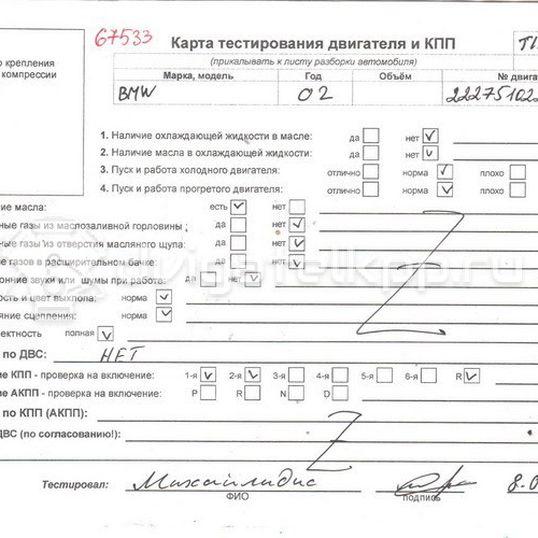 67533
Карта тестирования двигателя и КПП
(прикалывать к листу разборки автомобиля)
о крепления
компрессии
Марка, модель Год Объём № двига
BMW 02 22275102
1. Наличие охлаждающей жидкости в масле: да нет
2. Наличие масла в охлаждающей жидкости: да нет
3. Пуск и работа холодного двигателя: отлично норма плохо
4. Пуск и работа прогретого двигателя: отлично норма плохо
ие масла: есть нет
ные газы из маслозаливной горловины да нет
ные газы из отверстия масляного щупа: да нет
ие газов в расширительном бачке: да нет
онние звуки или шумы при работе: да нет
ость и цвет выхлопа: норма
яние сцепления: норма
ектность полная
по ДВС: НЕТ
ие КПП - проверка на включение: 1-я 2-я 3-я 4-я 5-я 6-я R
ие АКПП - проверка на включение: P R N D
по КПП (АКПП):
ДВС (по согласованию!):
Тестировал: Михайлидис 8.0
ФИО подпись